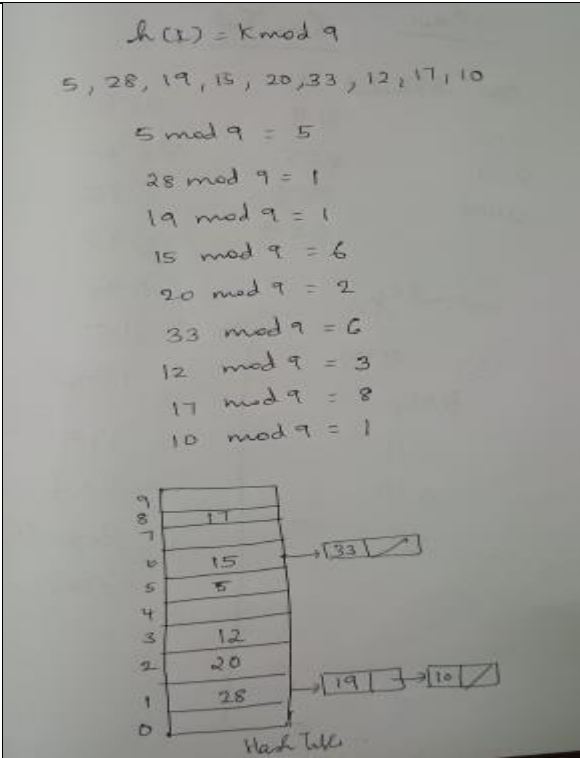 h(k) = K mod 9
5, 28, 19, 15, 20, 33, 12, 17, 10
5 mod 9 = 5
28 mod 9 = 1
19 mod 9 = 1
15 mod 9 = 6
20 mod 9 = 2
33 mod 9 = 6
12 mod 9 = 3
17 mod 9 = 8
10 mod 9 = 1
9
8 17
7
6 15 33
5 5
4
3 12
2 20
1 28 19 10
0
Hash Table